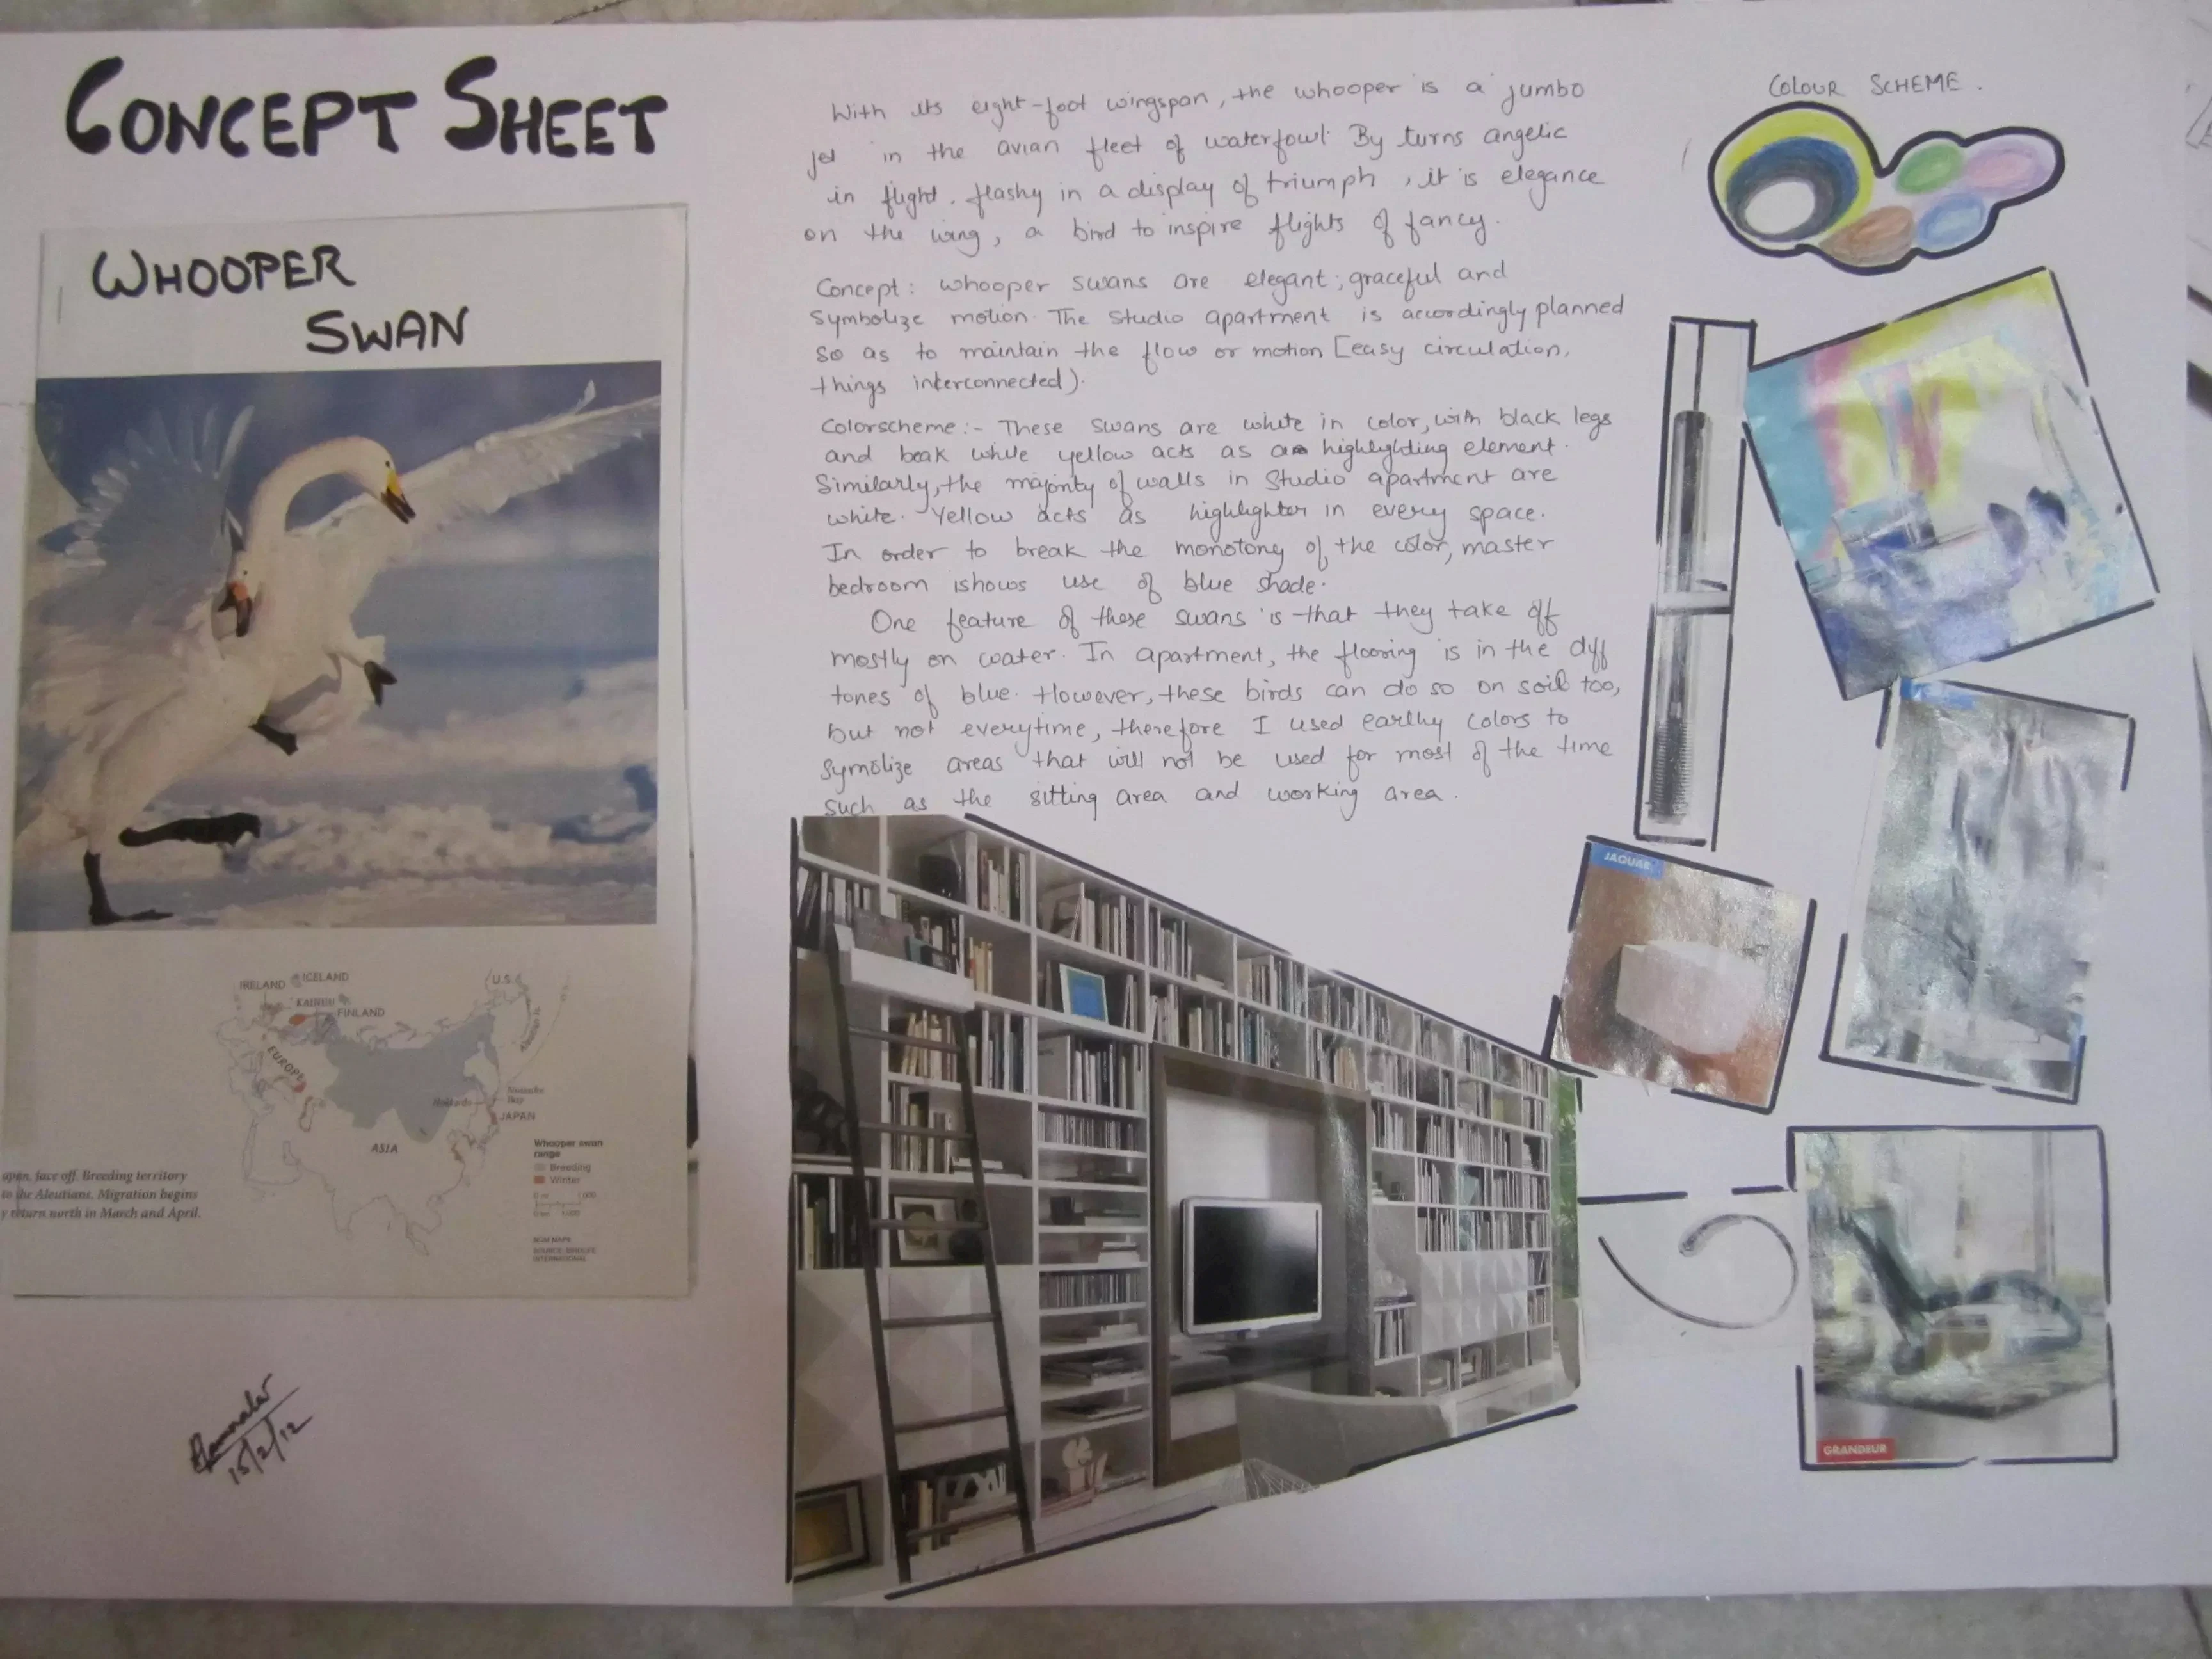 CONCEPT SHEET
WHOOPER
SWAN
IRELAND
ICELAND
KAINUU
FINLAND
U.S.
Aleutian Is.
EUROPE
Hokkaido
JAPAN
ASIA
Whooper swan
range
Breeding
Winter
0 mi 1,000
0 km 1,000
NGM MAPS
SOURCE: BIRDLIFE
INTERNATIONAL
apon, face off. Breeding territory
to the Aleutians. Migration begins
y return north in March and April.
15/2/12
With its eight-foot wingspan, the whooper is a jumbo
jet in the avian fleet of waterfowl. By turns angelic
in flight, flashy in a display of triumph, it is elegance
on the wing, a bird to inspire flights of fancy.
Concept: whooper swans are elegant; graceful and
symbolize motion. The studio apartment is accordingly planned
so as to maintain the flow or motion [easy circulation,
things interconnected).
Colorscheme:- These swans are white in color, with black legs
and beak while yellow acts as a highlighting element.
Similarly, the majority of walls in studio apartment are
white. Yellow acts as highlighter in every space.
In order to break the monotony of the color, master
bedroom shows use of blue shade.
One feature of these swans is that they take off
mostly on water. In apartment, the flooring is in the diff
tones of blue. However, these birds can do so on soil too,
but not everytime, therefore I used earthy colors to
symolize areas that will not be used for most of the time
such as the sitting area and working area.
COLOUR SCHEME.
JAQUAR
GRANDEUR